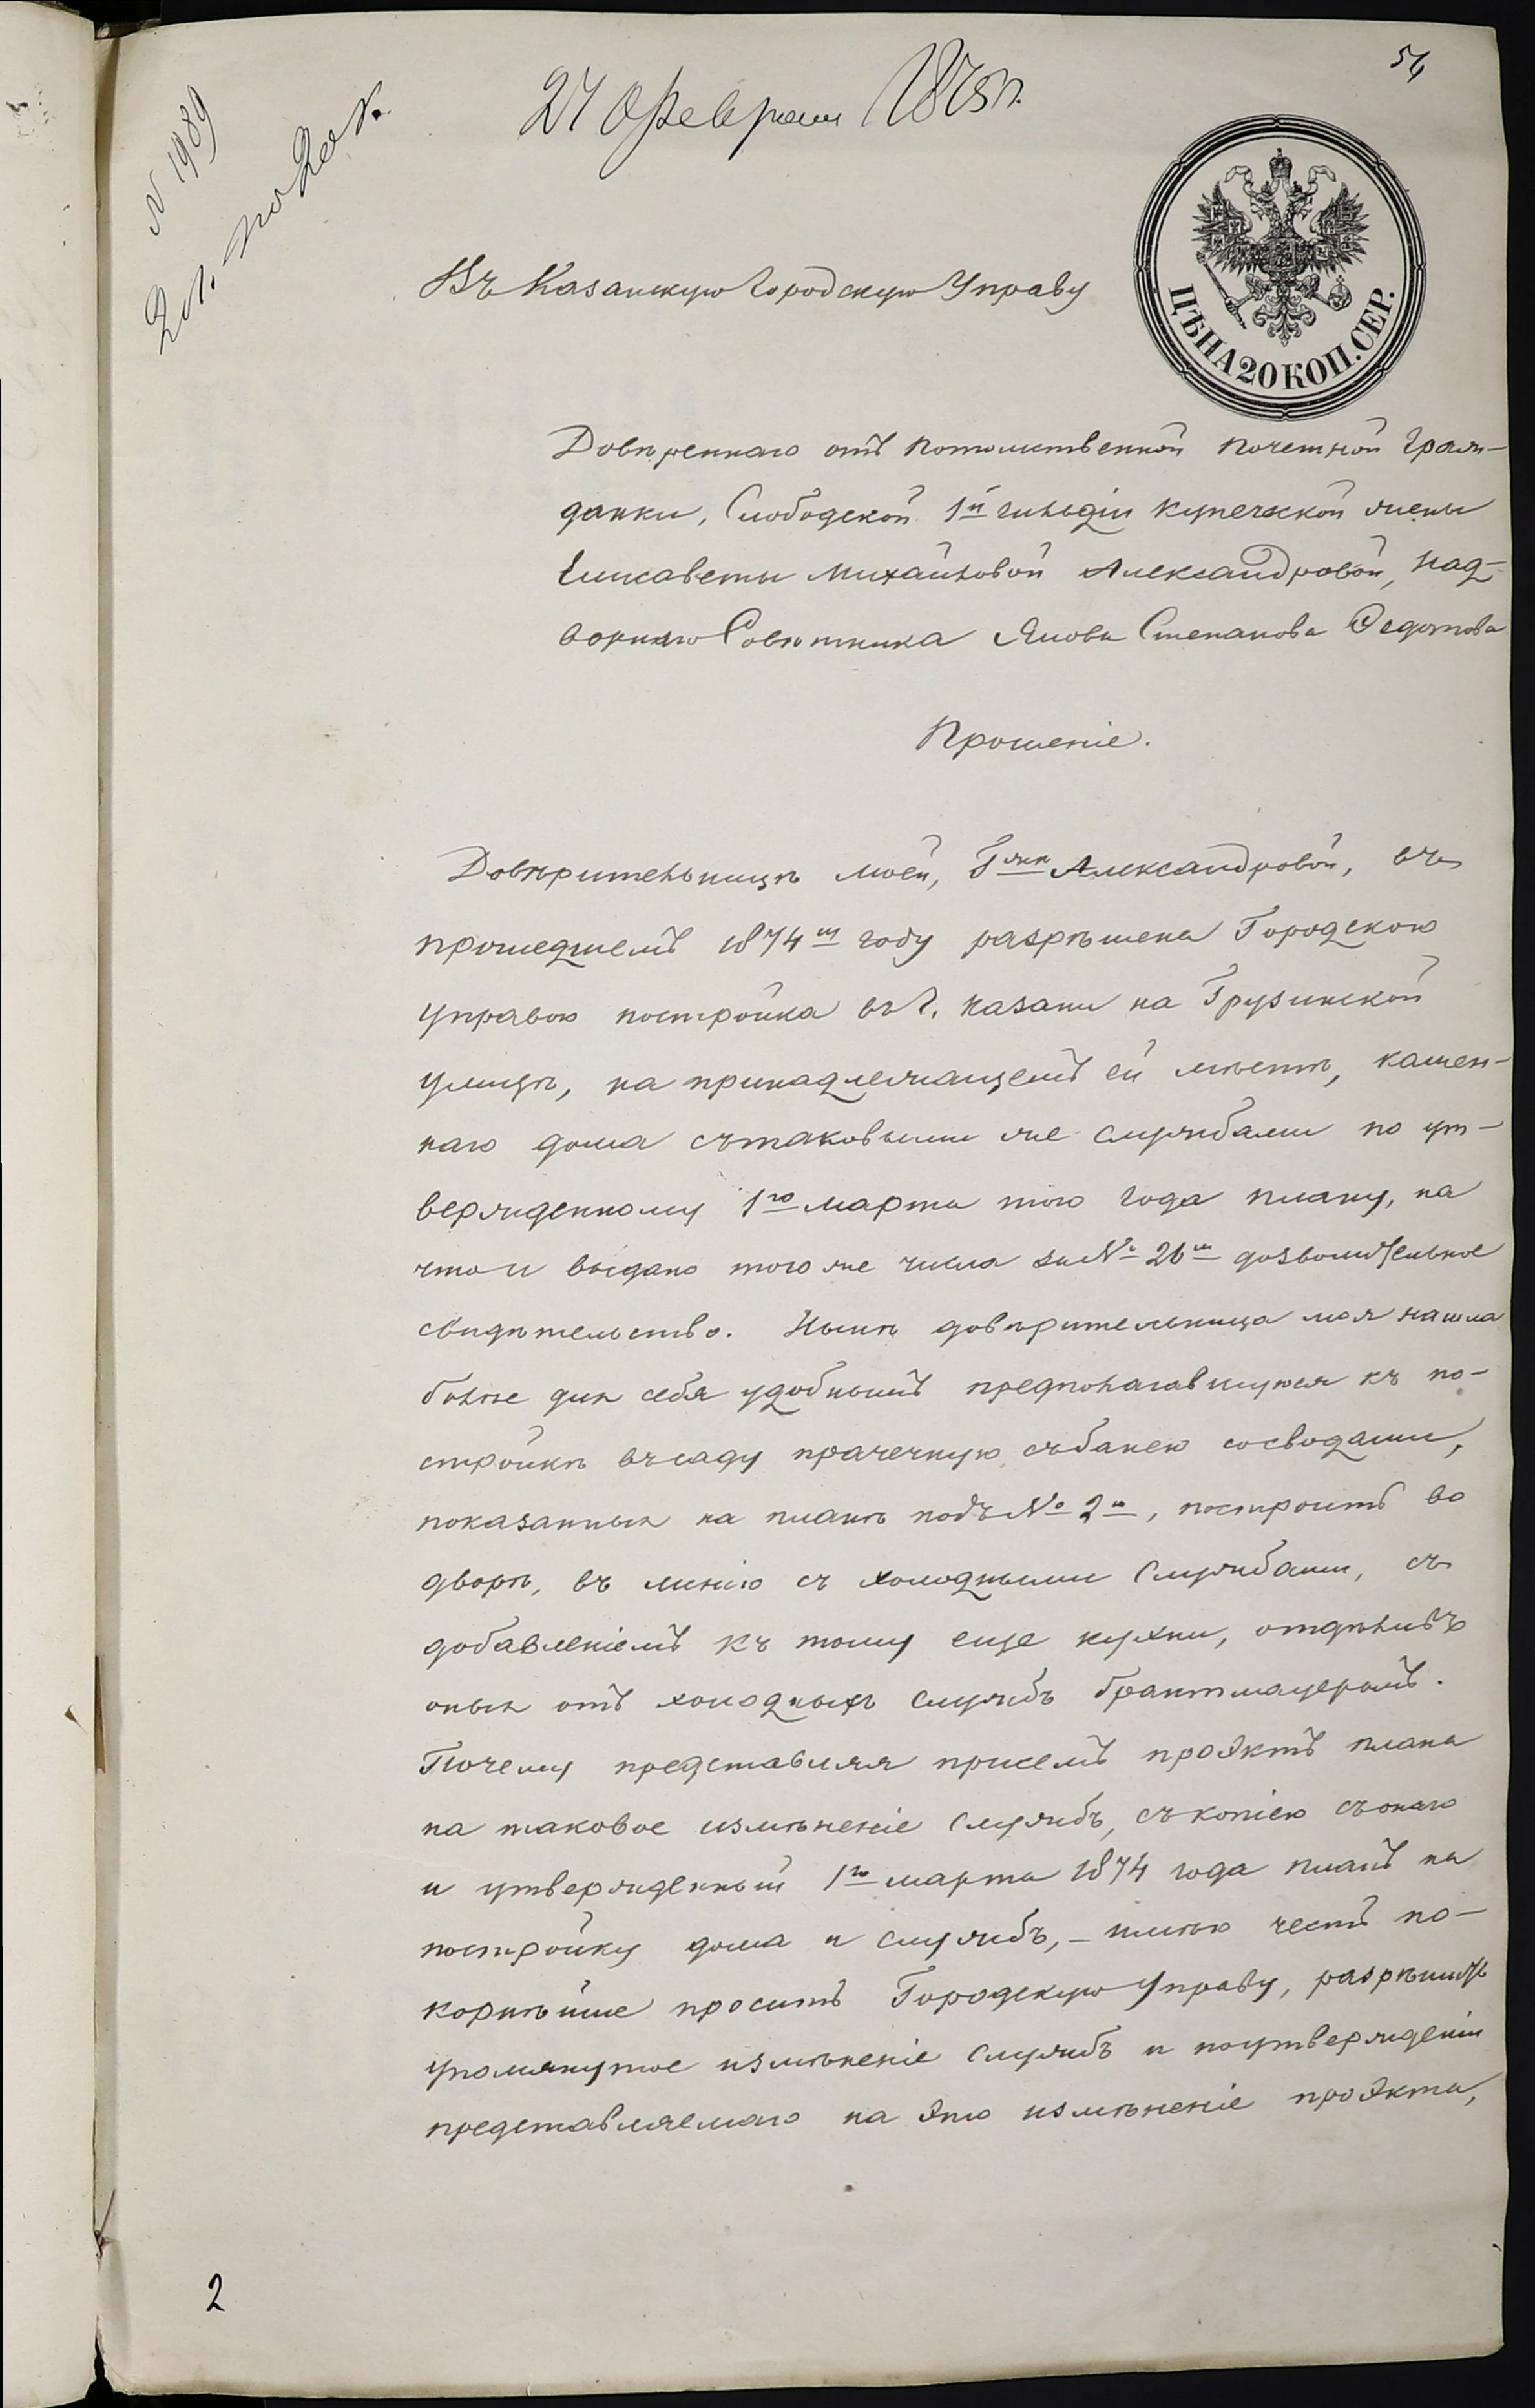 54
27 Февраля 1875 г.
N 1989
ЦѢНА 20 КОП. СЕР.
Въ Казанскую Городскую Управу
Довѣреннаго отъ потомственной почетной граж-
данки, Слободской 1й гильдіи купеческой жены
Елисаветы Михайловой Александровой, над-
ворнаго Совѣтника Якова Степанова Федотова
Прошеніе.
Довѣрительницѣ моей, Гжѣ Александровой, въ
прошедшемъ 1874м году разрѣшена Городскою
Управою постройка въ г. Казани на Грузинской
улицѣ, на принадлежащемъ ей мѣстѣ, камен-
наго дома съ таковыми же службами по ут-
вержденному 1го марта того года плану, на
что и выдано того же числа за № 26м дозволительное
свидѣтельство. Нынѣ довѣрительница моя нашла
болѣе для себя удобнымъ предполагавшуюся къ по-
стройкѣ въ саду прачечную съ банею со сводами,
показанныя на планѣ подъ № 2м, построить во
дворѣ, въ линію съ холодными службами, съ
добавленіемъ къ тому еще кухни, отдѣливъ
оныя отъ холодныхъ службъ брантмауеромъ.
Почему представляя присемъ проэктъ плана
на таковое измѣненіе службъ, съ копіею съ онаго
и утвержденный 1го марта 1874 года планъ на
постройку дома и службъ, - имѣю честь по-
корнѣйше просить Городскую Управу, разрѣшить
упомянутое измѣненіе службъ и по утвержденіи
представляемаго на это измѣненіе проэкта,
2